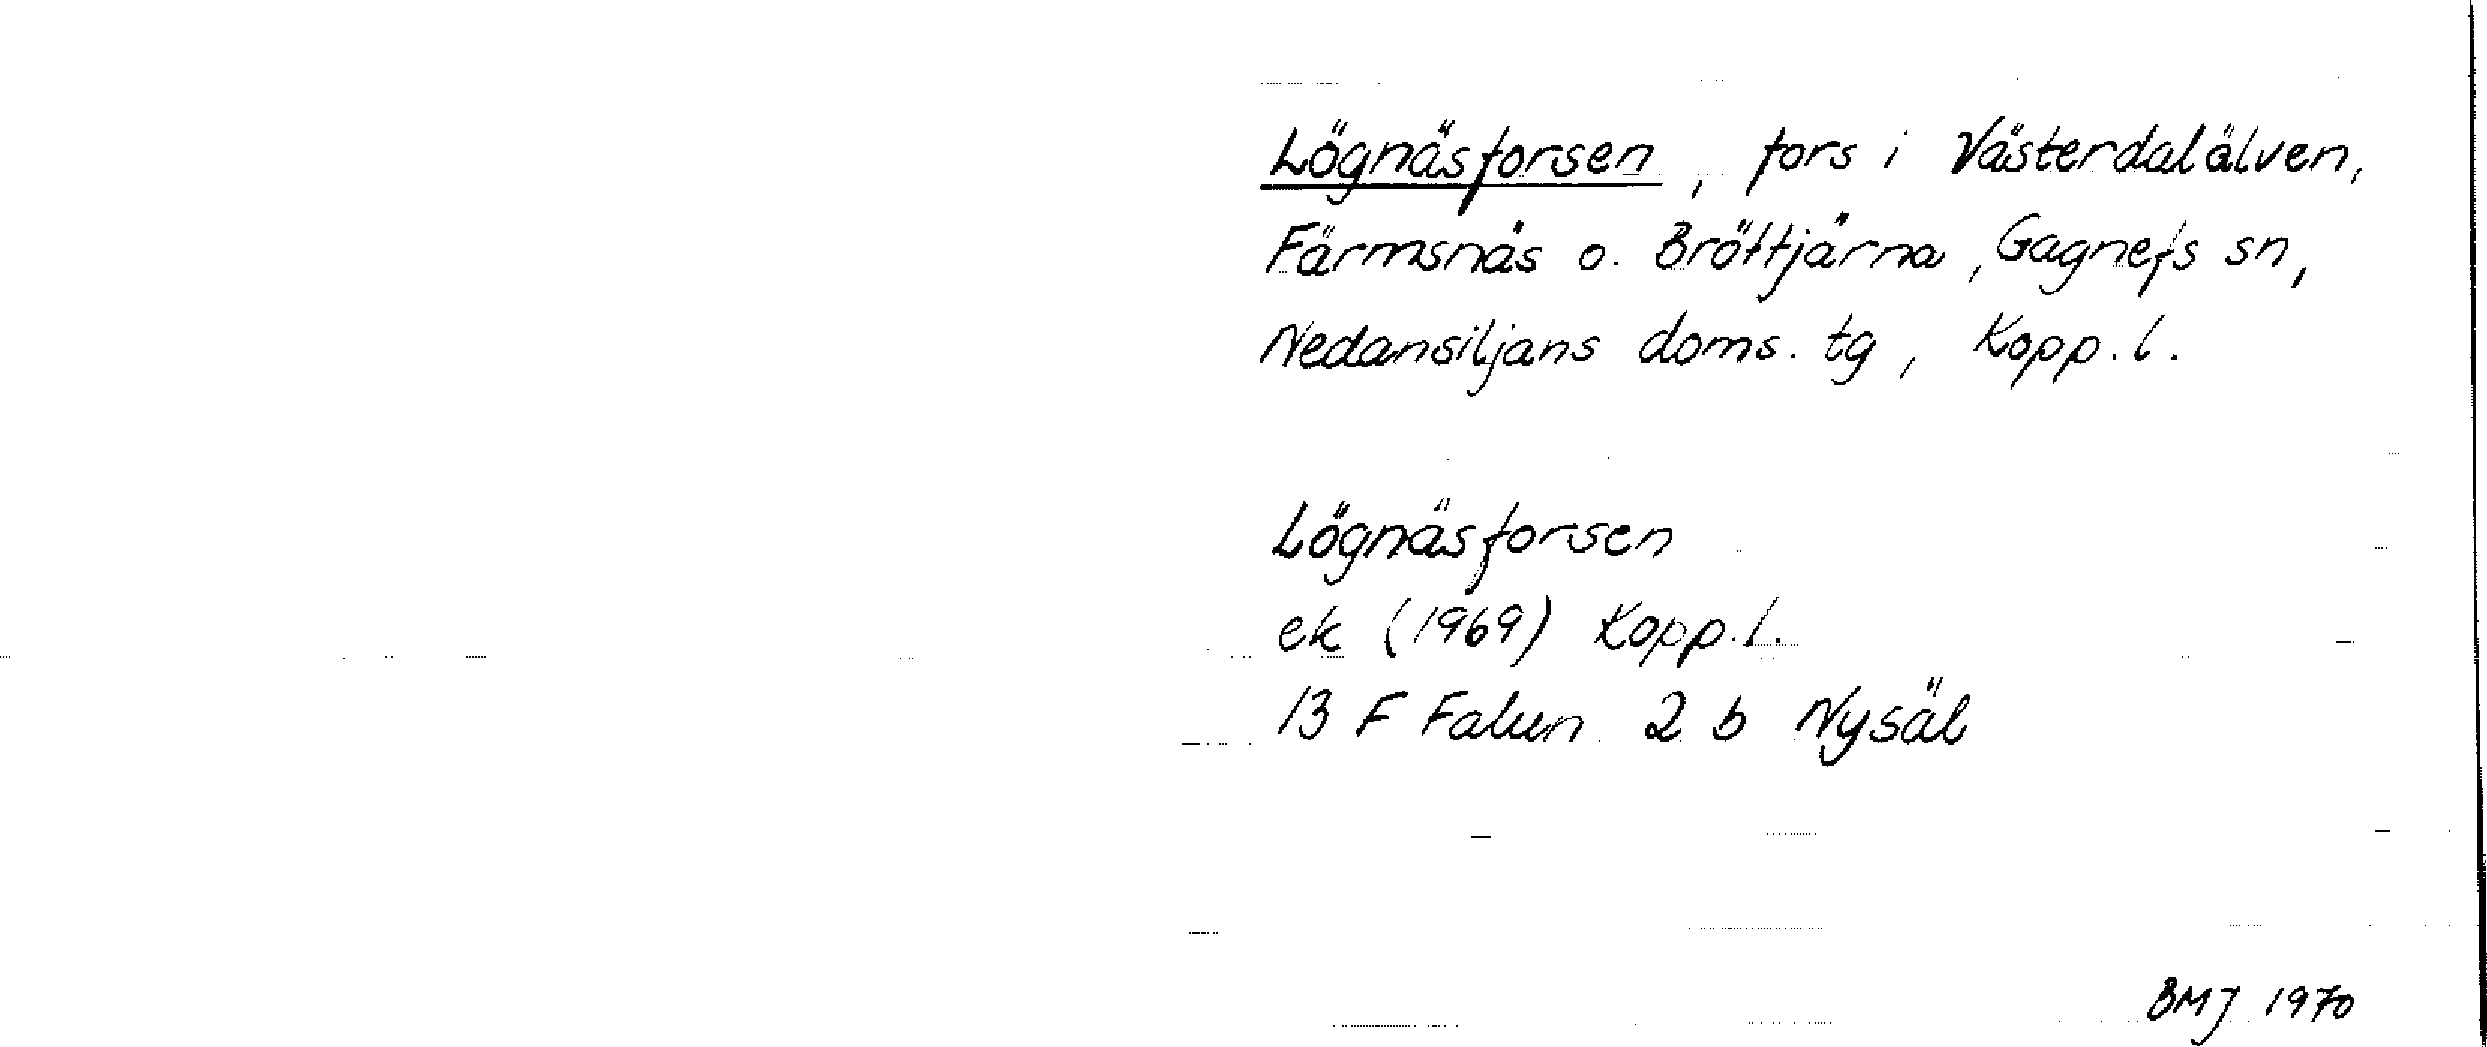 Lögnäsforsen, fors i Västerdalälven,
Färmsnäs o. Bröttjärna, Gagnefs sn,
Nedansiljans doms. tg, Kopp. l.
Lögnäsforsen
ek (1969) Kopp. l.
13 F Falun 2 b Nysäl
BMJ 1970